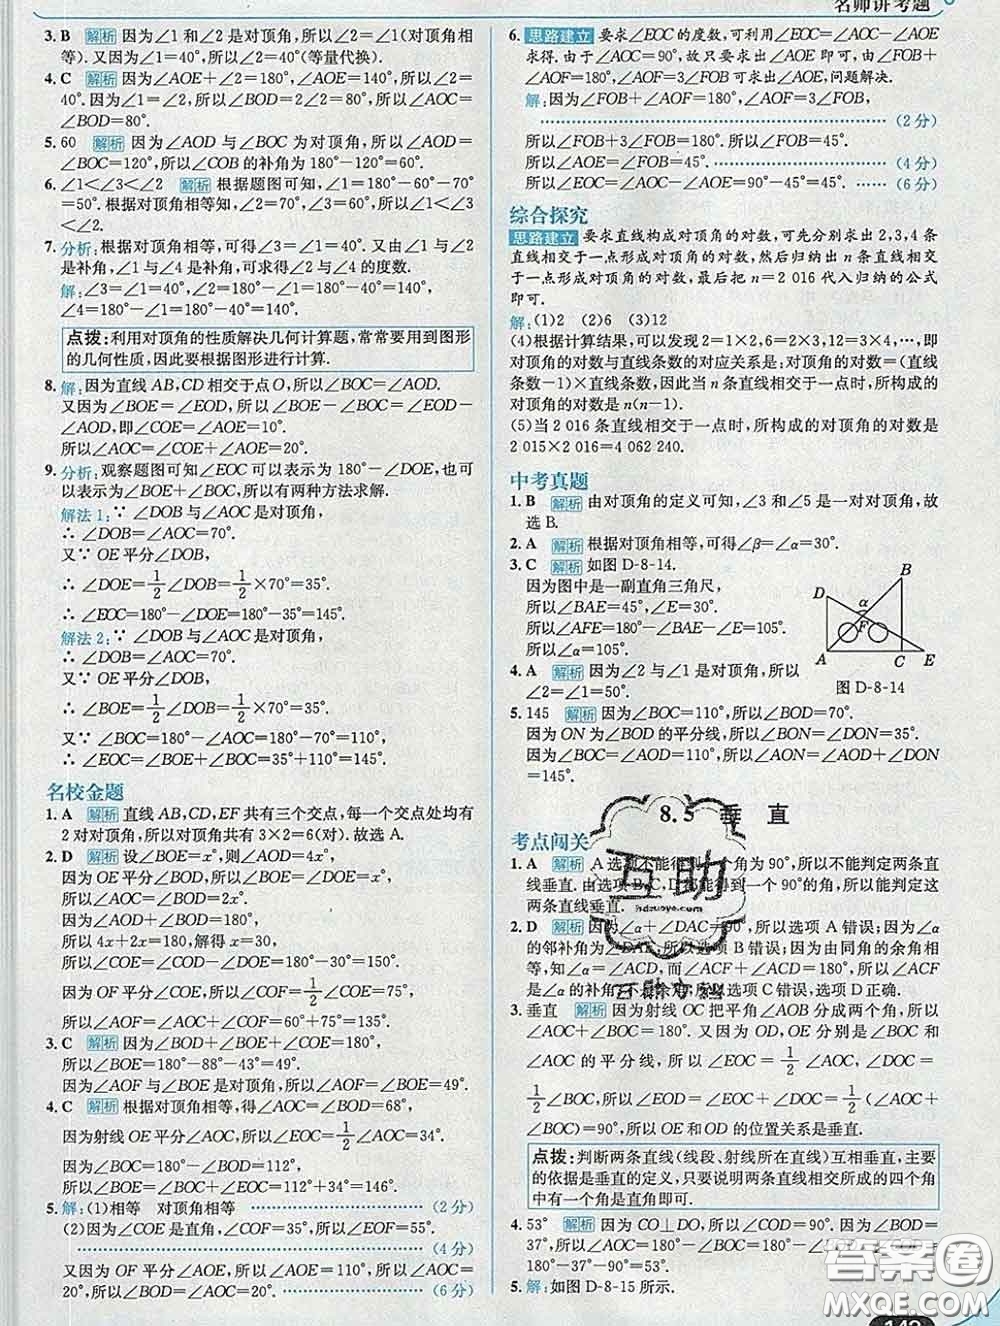 名师讲考题
3. B 解析 因为∠1和∠2是对顶角,所以∠1=∠2(对顶角相
等).又因为∠2=∠3,所以∠2=40°(等量代换).
4. C 解析 因为∠AOE+∠2=180°,∠AOE=140°,所以∠2=
40°.因为∠1=∠2,所以∠BOD=2∠2=80°,所以∠AOC=
∠BOD=80°.
5. 60 解析 因为∠AOD与∠BOC为对顶角,所以∠AOD=
∠BOC=120°,所以∠COB的补角为180°-120°=60°.
6. ∠1<∠3<∠2 解析 根据题图可知,∠1=180°-60°-70°
=50°.根据对顶角相等知,∠2=70°,∠3=60°,所以∠1<∠3
<∠2.
7. 分析:根据对顶角相等,可得∠3=∠1=40°.又由∠1与∠2
是补角,∠1与∠4是补角,可求得∠2与∠4的度数.
解:∠3=∠1=40°,∠2=180°-∠1=180°-40°=140°,
∠4=180°-∠1=180°-40°=140°.
点拨:利用对顶角的性质解决几何计算题,常常要用到图形
的几何性质,因此要根据图形进行计算.
8. 解:因为直线AB,CD相交于点O,所以∠BOC=∠AOD.
又因为∠BOE=∠EOD,所以∠BOE-∠BOC=∠EOD-
∠AOD,即∠COE=∠AOE=10°.
所以∠AOC=∠COE+∠AOE=20°.
9. 分析:观察题图可知∠EOC可以表示为180°-∠DOE,也可
以表示为∠BOE+∠BOC,所以有两种方法求解.
解法1:∵∠DOB与∠AOC是对顶角,
∴∠DOB=∠AOC=70°.
又∵OE平分∠DOB,
∴∠DOE=1/2∠DOB=1/2×70°=35°.
∴∠EOC=180°-∠DOE=180°-35°=145°.
解法2:∵∠DOB与∠AOC是对顶角,
∴∠DOB=∠AOC=70°.
又∵OE平分∠DOB,
∴∠BOE=1/2∠DOB=1/2×70°=35°.
又∵∠BOC=180°-∠DOB=180°-70°=110°,
∴∠EOC=∠BOE+∠BOC=35°+110°=145°.
名校金题
1. A 解析 直线AB,CD,EF共有三个交点,每一个交点处均有
2对对顶角,所以对顶角共有3×2=6(对).故选A.
2. D 解析 设∠BOE=x°,则∠AOD=4x°,
因为OD平分∠BOE,所以∠BOD=∠BOE=x°,
所以∠AOC=∠BOD=2x°,
因为∠AOD+∠BOD=180°,
所以4x+2x=180,解得x=30.
所以∠COE=180°-∠DOE=180°-30°=150°.
因为OF平分∠COE,所以∠COF=1/2∠COE=75°,
所以∠AOF=∠AOC+∠COF=60°+75°=135°.
3. C 解析 因为∠BOD+∠BOE+∠COE=180°,
所以∠BOE=180°-88°-43°=49°.
因为∠AOF与∠BOE是对顶角,所以∠AOF=∠BOE=49°.
4. C 解析 根据对顶角相等,得∠AOC=∠BOD=68°,
因为射线OE平分∠AOC,所以∠COE=1/2∠AOC=34°.
所以∠AOD=180°-∠AOC=112°.
所以∠DOE=∠AOE+∠AOD=34°+112°=146°.
5. 解:(1)相等 对顶角相等 (2分)
(2)因为∠COE是直角,∠COF=35°,所以∠EOF=55°.
(4分)
又因为OF平分∠AOE,所以∠AOE=110°,所以∠AOC=
20°,所以∠BOD=∠AOC=20°. (6分)
6. 思路建立 要求∠EOC的度数,可利用∠EOC=∠AOC-∠AOE
求得.由于∠AOC=90°,故只要求出∠AOE即可.由∠FOB+
∠AOF=180°,∠AOF=3∠FOB可求出∠AOE,问题解决.
解:因为∠FOB+∠AOF=180°,∠AOF=3∠FOB,
(2分)
所以∠FOB+3∠FOB=180°.所以∠FOB=45°.
所以∠AOE=∠FOB=45°. (4分)
所以∠EOC=∠AOC-∠AOE=90°-45°=45°. (6分)
综合探究
思路建立 要求直线构成对顶角的对数,可先分别求出2,3,4条
直线相交于一点形成对顶角的对数,然后归纳出n条直线相交
于一点形成对顶角的对数,最后把n=2 016代入归纳的公式
即可.
解:(1)2 (2)6 (3)12
(4)根据计算结果,可以发现2=1×2,6=2×3,12=3×4,…,即
对顶角的对数与直线条数的对应关系是:对顶角的对数=(直线
条数-1)×直线条数,因此当n条直线相交于一点时,所构成的
对顶角的对数是n(n-1).
(5)当2 016条直线相交于一点时,所构成的对顶角的对数是
2 015×2 016=4 062 240.
中考真题
1. B 解析 由对顶角的定义可知,∠3和∠5是一对对顶角,故
选B.
2. A 解析 根据对顶角相等,可得∠β=∠α=30°.
3. C 解析 如图D-8-14.
因为图中是一副直角三角尺,
所以∠BAE=45°,∠E=30°.
所以∠AFE=180°-∠BAE-∠E=105°.
所以∠α=105°.
B
D
α
F
A
C
E
图D-8-14
4. A 解析 因为∠2与∠1是对顶角,所以
∠2=∠1=50°.
5. 145 解析 因为∠BOC=110°,所以∠BOD=70°.
因为ON为∠BOD的平分线,所以∠BON=∠DON=35°.又
因为∠BOC=∠AOD=110°,所以∠AON=∠AOD+∠DON
=145°.
8.5 垂 直
考点闯关
1. A 解析 A选项不能得到一个角为90°,所以不能判定两条直
线垂直.由选项B,C,D都能得到一个90°的角,所以能判定这
两条直线垂直.
2. D 解析 因为∠α+∠DAC=90°,所以选项A错误;因为∠α
的邻补角为∠DAE,所以选项B错误;因为由同角的余角相
等,知∠α=∠CAD,而∠ACF=180°-∠ACD,所以∠ACF
是∠α的补角,不是余角,所以选项C错误,选项D正确.
3. 垂直 解析 因为射线OC把平角∠AOB分成两个角,所以
∠AOC+∠BOC=180°.又因为OD,OE分别是∠BOC和
∠AOC的平分线,所以∠EOC=1/2∠AOC,∠DOC=
1/2∠BOC,所以∠EOD=∠EOC+∠DOC=1/2(∠AOC+
∠BOC)=90°,所以OE和OD的位置关系是垂直.
点拨:判断两条直线(线段、射线所在直线)互相垂直,主要
的依据是垂直的定义,只要说明两条直线相交所成的四个角
中有一个角是直角即可.
4. 53° 解析 因为CO⊥DO,所以∠COD=90°.因为∠BOD=
37°,所以∠AOC=180°-90°-37°=53°.
5. 解:如图D-8-15所示.
互助
hdzuoye.com
答案圈
MXQE.COM
149